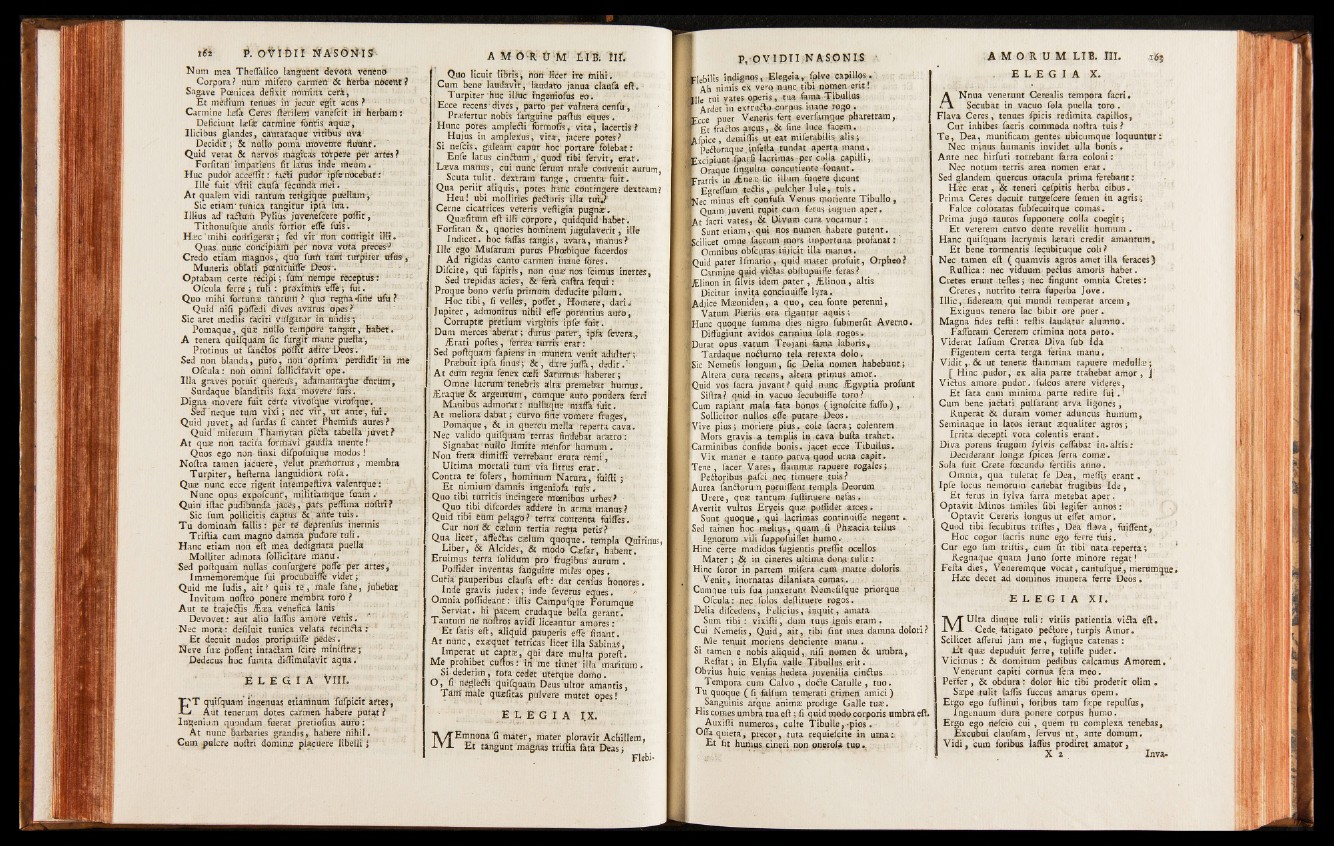 162 P. OVIDII NASONIS
Num mea Theſſalico languent devota veneno
Corpora? num miſero carmen & herba nocent?
Sagave Pœnicea defixit nomina cera,
Et medium tenues in jecur egit acus?
Carmine læſa Ceres ſterilem vaneſcit in herbam:
Deficiunt læſæ carmine fontis aquæ,
Ilicibus glandes, cantataque vitibus uva
Decidit; & nullo poma movente fluunt.
Quid vetat & nervos magicas torpere per artes?
Forſitan impatiens fit latus inde meum.
Huc pudor acceſſit: facti pudor ipſe nocebat:
Ille fuit vitii cauſa ſecunda mei.
At qualem vidi tantum tetigique puellam;
Sic etiam tunica tangitur ipſa ſua.
Illius ad tactum Pylius juveneſcere poſſit,
Tithonuſque annis fortior eſſe ſuis.
Hæc mihi contigerat; ſed vir non contigit illi.
Quas nunc concipiam per nova vota preces?
Credo etiam magnos, quo ſum tam turpiter uſus,
Muneris oblati pœnituiſſe Deos.
Optabam certe recipi; ſum nempe receptus:
Oſcula ferre; tuli: proximus eſſe; fui.
Quo mihi fortunæ tantum? quo regna ſine uſu?
Quid niſi poſſedi dives avarus opes?
Sic aret mediis taciti vulgator in undis;
Pomaque, quæ nullo tempore tangat, habet.
A tenera quiſquam ſic ſurgit mane puella,
Protinus ut ſanctos poſſit adire Deos.
Sed non blanda, puto, non optima perdidit in me
Oſcula: non omni ſollicitavit ope.
Illa graves potuit quercus, adamantaque durum,
Surdaque blanditiis ſaxa movere ſuis.
Digna movere fuit certe vivoſque viroſque.
Sed neque tum vixi; nec vir, ut ante, fui.
Quid juvet, ad ſurdas ſi cantet Phemius aures?
Quid miſerum Thamyran picta tabella juvet?
At quæ non tacita formavi gaudia mente!
Quos ego non finxi diſpoſuique modos!
Noſtra tamen jacuere, velut præmortua, membra
Turpiter, heſterna languidiora roſa.
Quæ nunc ecce rigent intempeſtiva valentque:
Nunc opus expoſcunt, militiamque ſuam.
Quin iſtac pudibunda jaces, pars peſſima noſtri?
Sic ſum pollicitis captus & ante tuis.
Tu dominam fallis: per te deprenſus inermis
Triſtia cum magno damna pudore tuli.
Hanc etiam non eſt mea dedignata puella
Molliter admota ſollicitare manu.
Sed poſtquam nullas conſurgere poſſe per artes,
Immemoremque ſui procubuiſſe videt;
Quid me ludis, ait? quis te, male ſane, jubebat
Invitum noſtro ponere membra toro?
Aut te trajectis Ææa venefica lanis
Devovet: aut alio laſſus amore venis.
Nec mora: deſiluit tunica velata recincta:
Et decuit nudos proripuiſſe pedes.
Neve ſuæ poſſent intactam ſcire miniſtræ;
Dedecus hoc ſumta diſſimulavit aqua.
ELEGIA VIII.
ET quiſquam ingenuas etiamnum ſuſpicit artes,
Aut tenerum dotes carmen habere putat?
Ingenium quondam fuerat pretioſius auro:
At nunc barbaries grandis, habere nihil.
Cum pulcre noſtri dominæ placuere libelli;
AMORUM LIB. III.
Quo licuit libris, non licet ire mihi.
Cum bene laudavit, laudato janua clauſa eſt.
Turpiter huc illuc ingenioſus eo.
Ecce recens dives, parto per vulnera cenſu,
Præfertur nobis ſanguine paſtus eques.
Hunc potes amplecti formoſis, vita, lacertis?
Hujus in amplexus, vita, jacere potes?
Si neſcis, galeam caput hoc portare ſolebat:
Enſe latus cinctum, quod tibi ſervit, erat.
Læva manus, cui nunc ſerum male convenit aurum,
Scuta tulit. dextram tange, cruenta fuit.
Qua periit aliquis, potes hanc contingere dextram?
Heu! ubi mollities pectoris illa tui?
Cerne cicatrices veteris veſtigia pugnæ.
Quæſitum eſt illi corpore, quidquid habet.
Forſitan &, quoties hominem jugulaverit, ille
Indicet. hoc faſſas tangis, avara, manus?
Ille ego Muſarum purus Phœbique ſacerdos
Ad rigidas canto carmen inane fores.
Diſcite, qui ſapitis, non quæ nos ſcimus inertes,
Sed trepidas acies, & fera caſtra ſequi:
Proque bono verſu primum deducite pilum.
Hoc tibi, ſi velles, poſſet, Homere, dari.
Jupiter, admonitus nihil eſſe potentius auro,
Corruptæ pretium virginis ipſe fuit.
Dum merces aberat; durus pater, ipſa ſevera,
Ærati poſtes, ferrea turris erat:
Sed poſtquam ſapiens in munera venit adulter;
Præbuit ipſa ſinus; &, dare juſſa, dedit.
At cum regna ſenex cæli Saturnus haberet;
Omne lucrum tenebris alta premebat humus.
Æraque & argentum, cumque auro pondera ferri
Manibus admorat: nullaque maſſa fuit.
At meliora dabat; curvo ſine vomere fruges,
Pomaque, & in quercu mella reperta cava.
Nec valido quiſquam terras findebat aratro:
Signabat nullo limite menſor humum.
Non freta dimiſſi verrebant eruta remi,
Ultima mortali tum via littus erat.
Contra te ſolers, hominum Natura, fuiſti;
Et nimium damnis ingenioſa tuis.
Quo tibi turritis incingere mœnibus urbes?
Quo tibi diſcordes addere in arma manus?
Quid tibi cum pelago? terra contenta fuiſſes.
Cur non & cælum tertia regna petis?
Qua licet, affectas cælum quoque. templa Quirinus,
Liber, & Alcides, & modo Cæſar, habent.
Eruimus terra ſolidum pro frugibus aurum.
Poſſidet inventas ſanguine miles opes.
Curia pauperibus clauſa eſt: dat cenſus honores.
Inde gravis judex; inde ſeverus eques.
Omnia poſſideant: illis Campuſque Forumque
Serviat. hi pacem crudaque bella gerant.
Tantum ne noſtros avidi liceantur amores:
Et ſatis eſt, aliquid pauperis eſſe ſinant.
At nunc, exæquet tetricas licet illa Sabinas,
Imperat ut captæ, qui dare multa poteſt.
Me prohibet cuſtos: in me timet illa maritum.
Si dederim, tota cedet uterque domo.
O, ſi neglecti quiſquam Deus ultor amantis,
Tam male quæſitas pulvere mutet opes!
ELEGIA IX.
MEmnona ſi mater, mater ploravit Achillem,
Et tangunt magnas triſtia fata Deas;
Flebi-
P. OVIDII NASONIS
Flebilis indignos, Elegeia, ſolve capillos.
Ah nimis ex vero nunc tibi nomen erit!
Ille tui vates operis, tua fama Tibullus
Ardet in extructo corpus inane rogo.
Ecce puer Veneris fert everſamque pharetram,
Et fractos arcus, & ſine luce facem.
Aſpice, demiſſis ut eat miſerabilis alis;
Pectoraque infeſta tundat aperta manu.
Excipiunt ſparſi lacrimas per colla capilli,
Oraque ſingultu concutiente ſonant.
Fratris in Æneæ ſic illum funere dicunt
Egreſſum tectis, pulcher Iule, tuis.
Nec minus eſt confuſa Venus moriente Tibullo,
Quam juveni rupit cum ferus inguen aper.
At ſacri vates, & Divum cura vocamur:
Sunt etiam, qui nos numen habere putent.
Scilicet omne ſacrum mors importuna profanat:
Omnibus obſcuras injicit illa manus.
Quid pater Iſmario, quid mater profuit, Orpheo?
Carmine quid victas obſtupuiſſe feras?
Ælinon in ſilvis idem pater, Ælinon, altis
Dicitur invita concinuiſſe lyra.
Adjice Mæoniden, a quo, ceu fonte perenni,
Vatum Pieriis ora rigantur aquis:
Hunc quoque ſumma dies nigro ſubmerſit Averno.
Diffugiunt avidos carmina ſola rogos.
Durat opus vatum Trojani fama laboris,
Tardaque nocturno tela retexta dolo.
Sic Nemeſis longum, ſic Delia nomen habebunt;
Altera cura recens, altera primus amor.
Quid vos ſacra juvant? quid nunc Ægyptia proſunt
Siſtra? quid in vacuo ſecubuiſſe toro?
Cum rapiant mala fata bonos (ignoſcite faſſo),
Sollicitor nullos eſſe putare Deos.
Vive pius; moriere pius. cole ſacra; colentem
Mors gravis a templis in cava buſta trahet.
Carminibus confide bonis. jacet ecce Tibullus.
Vix manet e tanto parva quod urna capit.
Tene, ſacer Vates, flammæ rapuere rogales;
Pectoribus paſci nec timuere tuis?
Aurea ſanctorum potuiſſent templa Deorum
Urere, quæ tantum ſuſtinuere nefas.
Avertit vultus Erycis quæ poſſidet arces.
Sunt quoque, qui lacrimas continuiſſe negent.
Sed tamen hoc melius, quam ſi Phæacia tellus
Ignotum vili ſuppoſuiſſet humo.
Hinc certe madidos fugientis preſſit ocellos
Mater; & in cineres ultima dona tulit:
Hinc ſoror in partem miſera cum matre doloris
Venit, inornatas dilaniata comas.
Cumque tuis ſua junxerunt Nemeſiſque priorque
Oſcula: nec ſolos deſtituere rogos.
Delia diſcedens, Felicius, inquit, amata
Sum tibi: vixiſti, dum tuus ignis eram.
Cui Nemeſis, Quid, ait, tibi ſint mea damna dolori?
Me tenuit moriens deficiente manu.
Si tamen e nobis aliquid, niſi nomen & umbra,
Reſtat; in Elyſia valle Tibullus erit.
Obvius huic venias hedera juvenilia cinctus
Tempora cum Calvo, docte Catulle, tuo.
Tu quoque (ſi falſum temerati crimen amici)
Sanguinis atque animæ prodige Galle tuæ.
His comes umbra tua eſt: ſi quid modo corporis umbra eſt.
Auxiſti numeros, culte Tibulle, pios.
Oſſa quieta, precor, tuta requieſcite in urna:
Et ſit humus cineri non oneroſa tuo.
AMORUM LIB. III. 163
ELEGIA X.
ANnua venerunt Cerealis tempora ſacri.
Secubat in vacuo ſola puella toro.
Flava Ceres, tenues ſpicis redimita capillos,
Cur inhibes ſacris commoda noſtra tuis?
Te, Dea, munificam gentes ubicumque loquuntur:
Nec minus humanis invidet ulla bonis.
Ante nec hirſuti torrebant farra coloni:
Nec notum terris area nomen erat.
Sed glandem quercus oracula prima ferebant:
Hæc erat, & teneri ceſpitis herba cibus.
Prima Ceres docuit turgeſcere ſemen in agris;
Falce coloratas ſubſecuitque comas.
Prima jugo tauros ſupponere colla coegit;
Et veterem curvo dente revellit humum.
Hanc quiſquam lacrymis lætari credit amantum,
Et bene tormentis ſecubituque coli?
Nec tamen eſt (quamvis agros amet illa feraces)
Ruſtica: nec viduum pectus amoris habet.
Cretes erunt teſtes; nec fingunt omnia Cretes:
Cretes, nutrito terra ſuperba Jove.
Illic, ſideream qui mundi temperat arcem,
Exiguus tenero lac bibit ore puer.
Magna fides teſti: teſtis laudatur alumno.
Faſſuram Cererem crimina nota puto.
Viderat Iaſium Cretæa Diva ſub Ida
Figentem certa terga ferina manu.
Vidit, & ut teneræ flammam rapuere medullæ;
[ Hinc pudor, ex alia parte trahebat amor, ]
Victus amore pudor. ſulcos arere videres,
Et ſata cum minima parte redire ſui.
Cum bene jactati pulſarant arva ligones,
Ruperat & duram vomer aduncus humum,
Seminaque in latos ierant æqualiter agros;
Irrita decepti vota colentis erant.
Diva potens frugum ſylvis ceſſabat in altis:
Deciderant longæ ſpicea ſerta comæ.
Sola fuit Crete fœcundo fertilis anno.
Omnia, qua tulerat ſe Dea, meſſis erant.
Ipſe locus nemorum canebat frugibus Ide,
Et ferus in ſylva farra metebat aper.
Optavit Minos ſimiles ſibi legifer annos:
Optavit Cereris longus ut eſſet amor.
Quod tibi ſecubitus triſtes, Dea flava, fuiſſent,
Hoc cogor ſacris nunc ego ferre tuis.
Cur ego ſim triſtis, cum ſit tibi nata reperta;
Regnaque quam Juno ſorte minore regat!
Feſta dies, Veneremque vocat, cantuſque, merumque.
Hæc decet ad dominos munera ferre Deos.
ELEGIA XI.
MUlta diuque tuli: vitiis patientia victa eſt.
Cede fatigato pectore, turpis Amor.
Scilicet aſſerui jam me, fugique catenas:
Et quæ depuduit ferre, tuliſſe pudet.
Vicimus: & domitum pedibus calcamus Amorem.
Venerunt capiti cornua ſera meo.
Perfer, & obdura: dolor hic tibi proderit olim.
Sæpe tulit laſſis ſuccus amarus opem.
Ergo ego ſuſtinui, foribus tam ſæpe repulſus,
Ingenuum dura ponere corpus humo.
Ergo ego neſcio cui, quem tu complexa tenebas,
Excubui clauſam, ſervus ut, ante domum.
Vidi, cum foribus laſſus prodiret amator,
X 2 Inva-